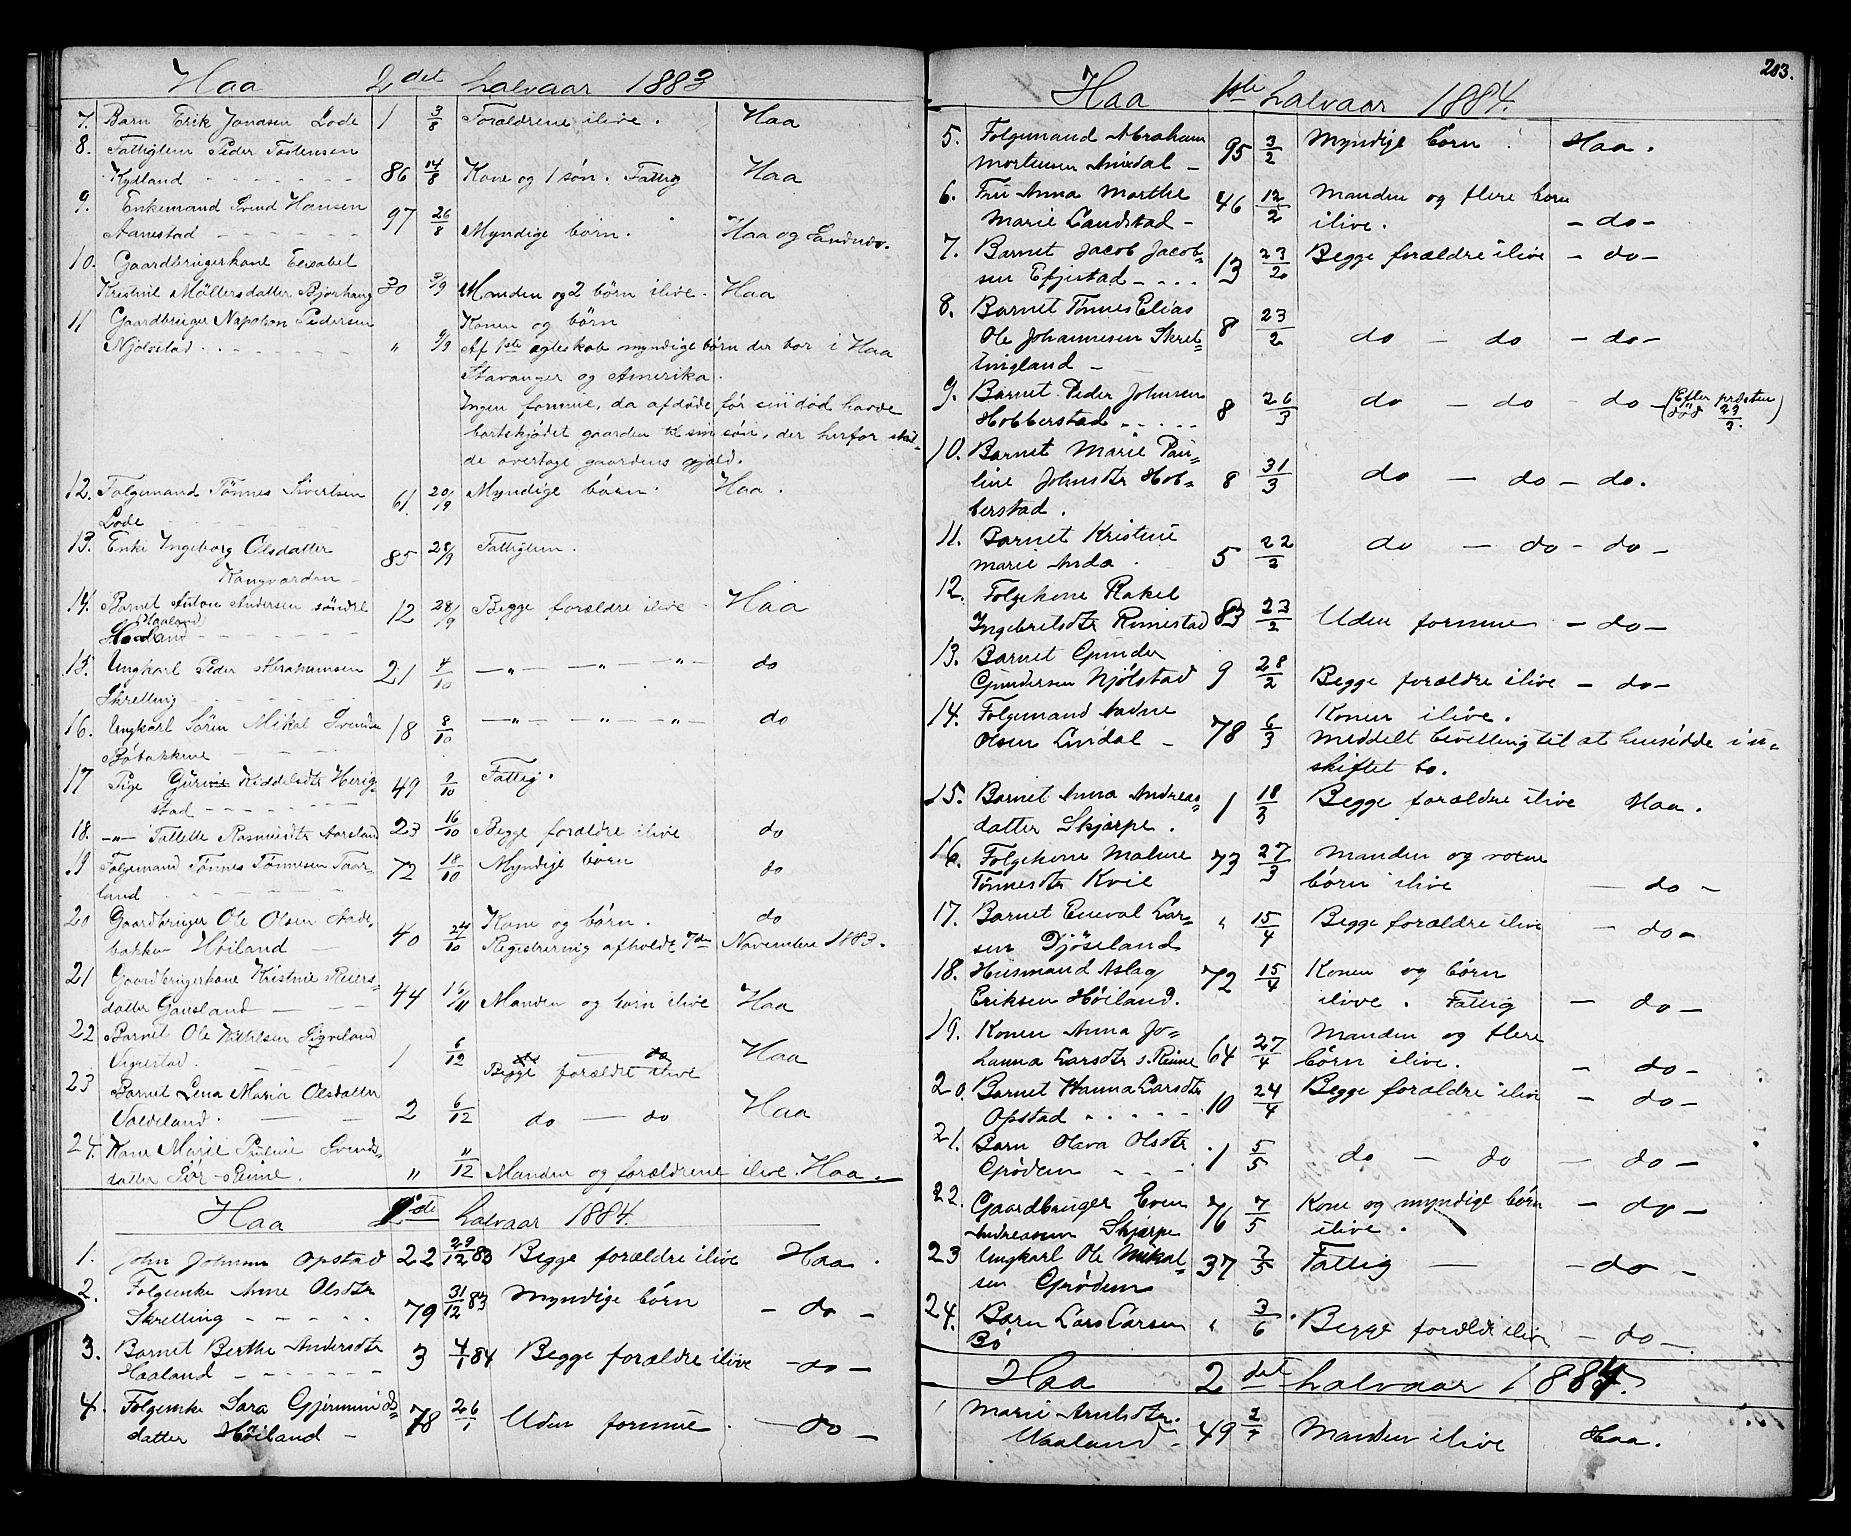 Haa 2det halvaar 1883
7. Barn Erik Jonasen Lode 1 3/8 Forældrene ilive. Haa
8. Fattiglem Peder Tostensen
Kydland - - - - - - 86 14/8 Kone og 1 søn. Fattig Haa
9. Enkemand Svend Hansen
Aanestad - - - - - - 97 26/8 Myndige børn. Haa og
10. Gaardbrugerkone
Kristine Möllersdatter Bjorhaug 30 3/9 Manden og 2 børn ilive. Haa
11 Gaardbruger Napoleon Pedersen Konen og børn
Njølstad . . - - - - - " 9/9 Af 1ste ægteskab myndige børn der bor i Haa
Stavanger og Amerika.
Ingen formue, da afdøde før sin död havde
bortskjödet gaarden til sin søn, der herfor skul-
de overtage gaardens gjæld.
12. Folgemand Tönnes Sivertsen 61. 20/9 Myndige børn. Haa.
Lode
13. Enke Ingeborg Olsdatter 85 28/9 Fattiglem.
Kongvarden -
14. Barnet Anton Andersen söndre 12 28/9 Begge forældre ilive. Haa
Haaland
15. Ungkarl Peder Abrahamsen 21 4/10 -"- -"- -"- do
Skretting - - - -
16. Ungkarl Sören Mikal Svendsen 18 8/10 -"- -"- -"- do
Bøbakkene - - - -
17 Pige Guri Kiddelsdtr Herig- 49 9/10 Fattig.
stad - - - - - -
18. -"- Tallette Rasmusdtr Aarsland 23 16/10 Begge forældre ilive do
19 Folgemand Tönnes Tönnesen Taar- 72 18/10 Myndige börn do
land - - - - - -
20 Gaardbruger Ole Olsen Aade- 40 24/10 Kone og börn. do
bakken Höiland - Registrering afholdt 7de November 1883.
21 Gaardbrugerkone Kristine Reiers-
datter Gausland - - 44 16/11 Manden og børn ilive Haa
22 Barnet Ole Sigveland
1 6/12 Begge forældre ilive Haa
23 Barnet Lena Maria Olsdatter
2 6/12 do - do Haa
24. Kone Marie Pauline Svends-
datter Sör-Reime. " 11/12 Manden og forældrene ilive. Haa.
Haa 1ste halvaar 1884.
1. John Johnsen Opstad 22 29/12 83 Begge forældre ilive Haa.
2. Folgeenke Anne Olsdtr
Skretting - - - - 79 31/12 83 Myndige börn - do -
3. Barnet Berthe Andersdtr
Haaland - - - - - 3 4/1 84 Begge forældre ilive - do -
4. Folgeenke Sara Gjermunds-
datter Höiland - 78 26/1 Uden formue - do -
203.
Haa 1ste halvaar 1884.
5. Folgemand Abraham
Mortensen Aniedal - 95 3/2 Myndige börn. Haa.
6. Fru Anna Marthe
Marie Landstad - 46 12/2 Manden og flere børn
ilive. - do -
7. Barnet Jacob Jacob-
sen Efjestad - - - - 13 23/2 Begge forældre ilive - do -
8. Barnet Tönnes Elias
Ole Johannesen Skret- 8 23/2 do - do - do -
tingland -
9. Barnet Peder Johnsen
Hobberstad - - - - - 8 26/3 do - do - do - (Efter præsten död 29/3.)
10. Barnet Marie Pau-
line Johnsdtr Hob- 8 31/3 do - do - do.
berstad.
11. Barnet Kristine
Marie Anda. 5 22/2 do - do - do -
12. Folgekone Rakel
Ingebretsdtr Rimestad 83 23/2 Uden formue - do -
13. Barnet Gunder
Gundersen Njölstad 9 28/2 Begge forældre ilive - do -
14. Folgemand Aadne
Olsen Lindal - 78 6/3 Konen ilive.
Meddelt bevilling til at hensidde i u-
skiftet bo.
15. Barnet Anna Andreas-
datter Skjærpe. 1 18/3 Begge forældre ilive Haa.
16. Folgekone Malene
Tönnesdtr Kvie 73 27/3 Manden og voxne
börn ilive - do -
17. Barnet Eneval Lar-
sen Tjöseland " 15/4 Begge forældre ilive - do -
18. Husmand Aslag
Eriksen Höiland. 72 15/4 Konen og börn
ilive. Fattig - do -
19. Konen Anna Jo-
hanna Larsdtr s. Reime 64 27/4 Manden og flere
børn ilive. - do -
20. Barnet Hanna Larsdtr
Opstad - - - - - 10 24/4 Begge forældre ilive - do -
21. Barn Olava Olsdtr
Grödem - - - - 1 5/5 do - do - do -
22. Gaardbruger Even
Andreassen Skjærpe 76 7/5 Kone og myndige børn
ilive. - do -
23 Ungkarl Ole Mikal-
sen Grödem 37 7/5 Fattig - - do -
24. Barn Lars Larsen
Bö " 3/6 Begge forældre ilive - do -
Haa 2det halvaar 1884.
1 Marie Arnesdtr.
Waaland - 49 2/7 Manden ilive Haa.